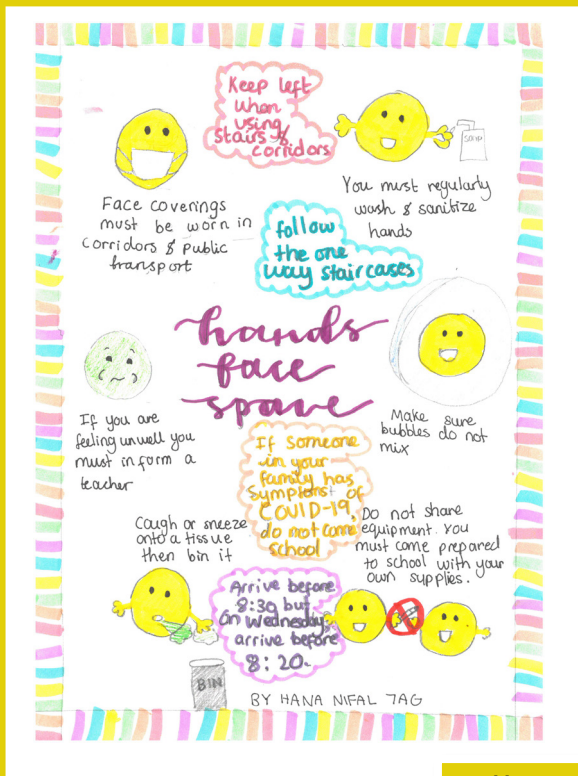 Keep left
when
using
stairs &
corridors
soap
Face coverings
must be worn in
corridors & public
transport
You must regularly
wash & sanitize
hands
follow
the one
way staircases
hands
face
space
If you are
feeling unwell you
must inform a
teacher
Make sure
bubbles do not
mix
If someone
in your
family has
symptoms of
COVID-19,
do not come
school
Cough or sneeze
onto a tissue
then bin it
Do not share
equipment. You
must come prepared
to school with your
own supplies.
Arrive before
8:30 but
on Wednesday
arrive before
8:20.
BIN
BY HANA NIFAL 7AG